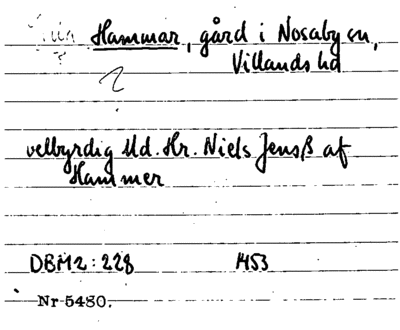 Hammar, gård i Nosaby sn,
Villands hd
velbyrdig Md. Hr. Niels Jensß af
Hammer
DBM2:228 1453
Nr 5480.